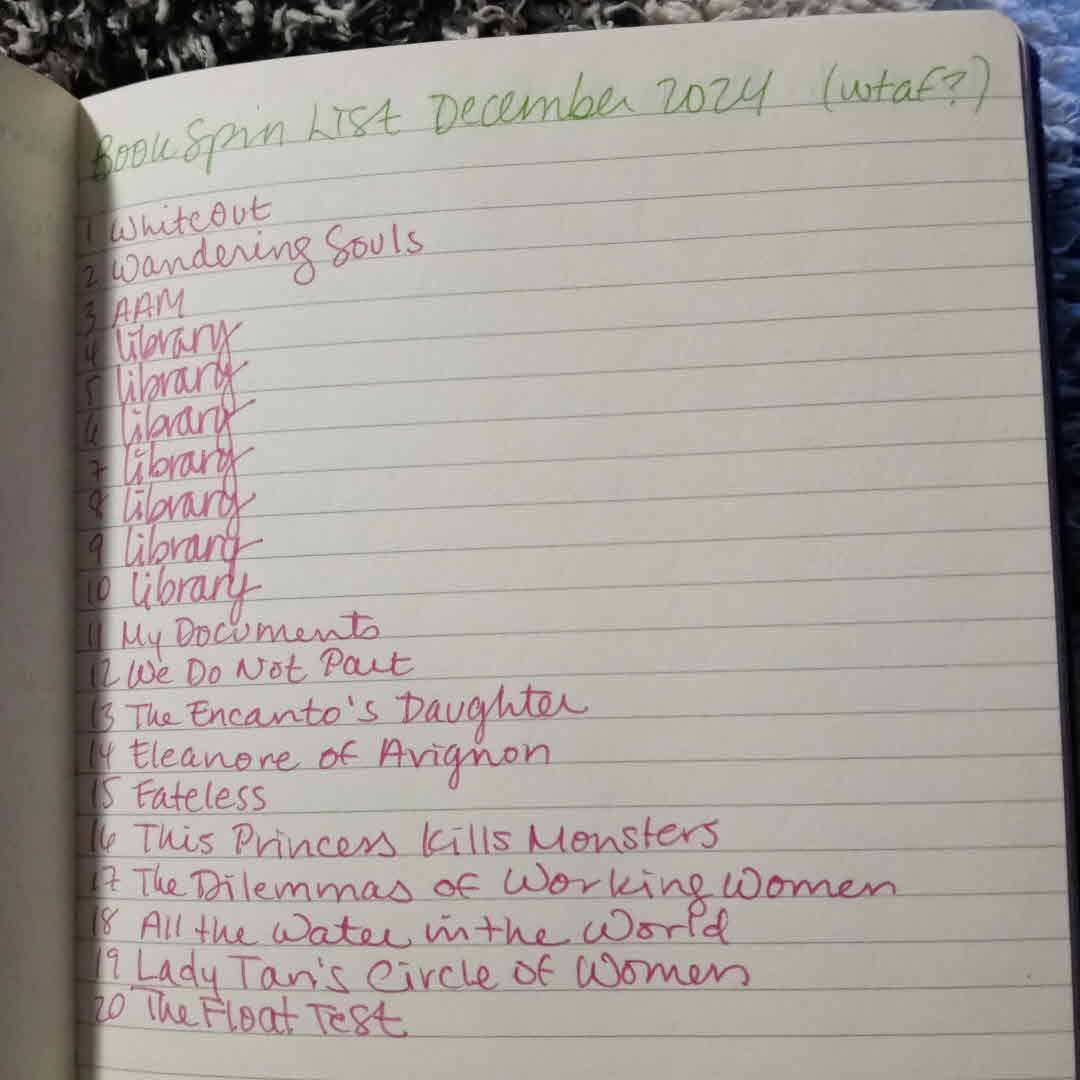 BookSpin List December 2024 (wtaf?)
1 WhiteOut
2 Wandering Souls
3 AAM
4 library
5 library
6 library
7 library
8 library
9 library
10 library
11 My Documents
12 We Do Not Part
13 The Encanto's Daughter
14 Eleanore of Avignon
15 Fateless
16 This Princess Kills Monsters
17 The Dilemmas of Working Women
18 All the Water in the World
19 Lady Tan's Circle of Women
20 The Float Test